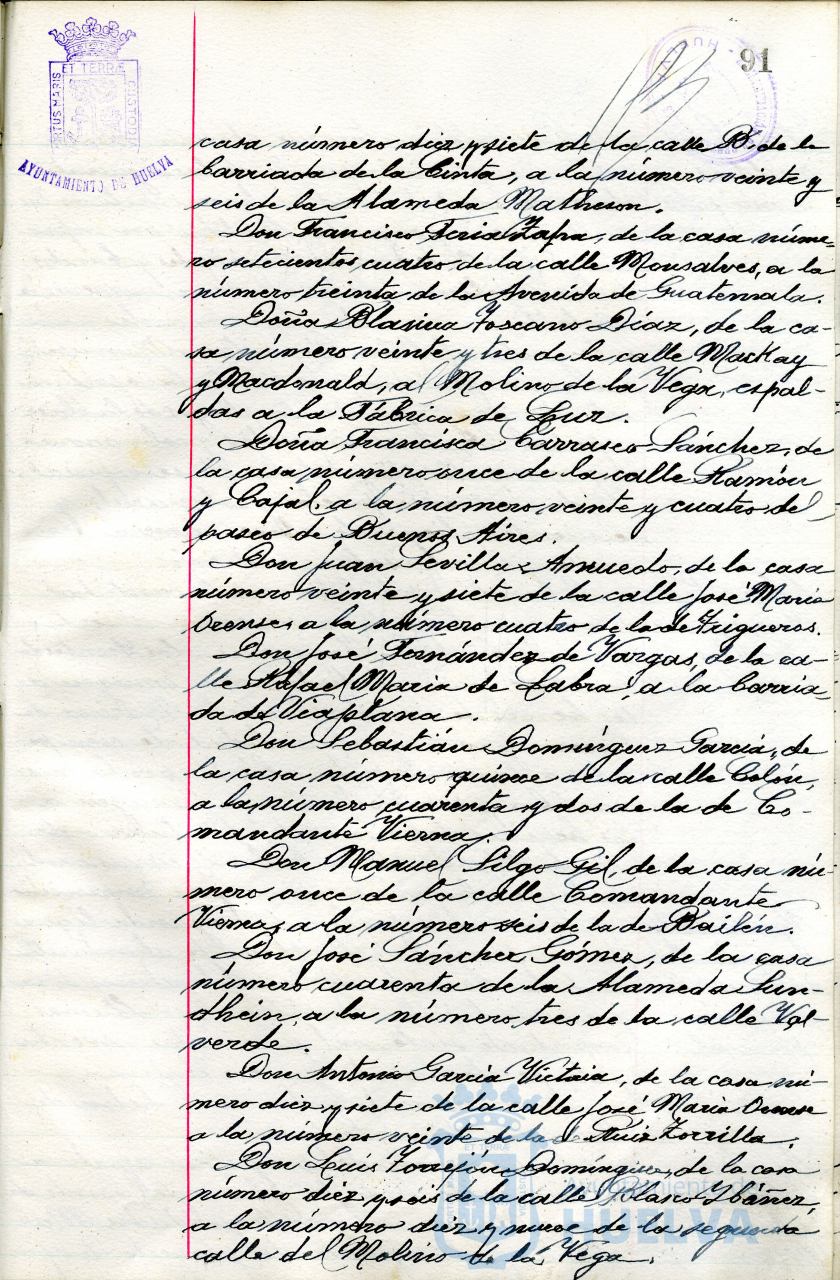 91
PORTUS MARIS ET TERRÆ CUSTODIA
AYUNTAMIENTO DE HUELVA
casa número diez y siete de la calle B. de la
barriada de la Cinta, a la número veinte y
seis de la Alameda Matheson.
Don Francisco Feria Zafra, de la casa núme-
ro setecientos cuatro de la calle Monsalves, a la
número treinta de la Avenida de Guatemala.
Doña Blasina Toscano Díaz, de la ca-
sa número veinte y tres de la calle Mackay
y Macdonald, al Molino de la Vega, espal-
das a la Fábrica de Luz.
Doña Francisca Carrasco Sánchez, de
la casa número once de la calle Ramón
y Cajal, a la número veinte y cuatro del
paseo de Buenos Aires.
Don Juan Sevilla Amuedo, de la casa
número veinte y siete de la calle José María
Orense, a la número cuatro de la de Trigueros.
Don José Fernández de Vargas, de la ca-
lle Rafael María de Labra, a la barria-
da de Viaplana.
Don Sebastián Domínguez García, de
la casa número quince de la calle Colón,
a la número cuarenta y dos de la de Co-
mandante Vierna.
Don Manuel Silgo Gil, de la casa nú-
mero once de la calle Comandante
Vierna, a la número seis de la de Bailén.
Don José Sánchez Gómez, de la casa
número cuarenta de la Alameda Sun-
dhein, a la número tres de la calle Val-
verde.
Don Antonio García, de la casa nú-
mero diez y siete de la calle José María Orense
a la número veinte de la de Ruiz Zorrilla.
Don Luís Torrejón Domínguez, de la casa
número diez y seis de la calle Blasco Ybáñez,
a la número diez y nueve de la segunda
calle del Molino de la Vega.
Ayuntamiento de
HUELVA